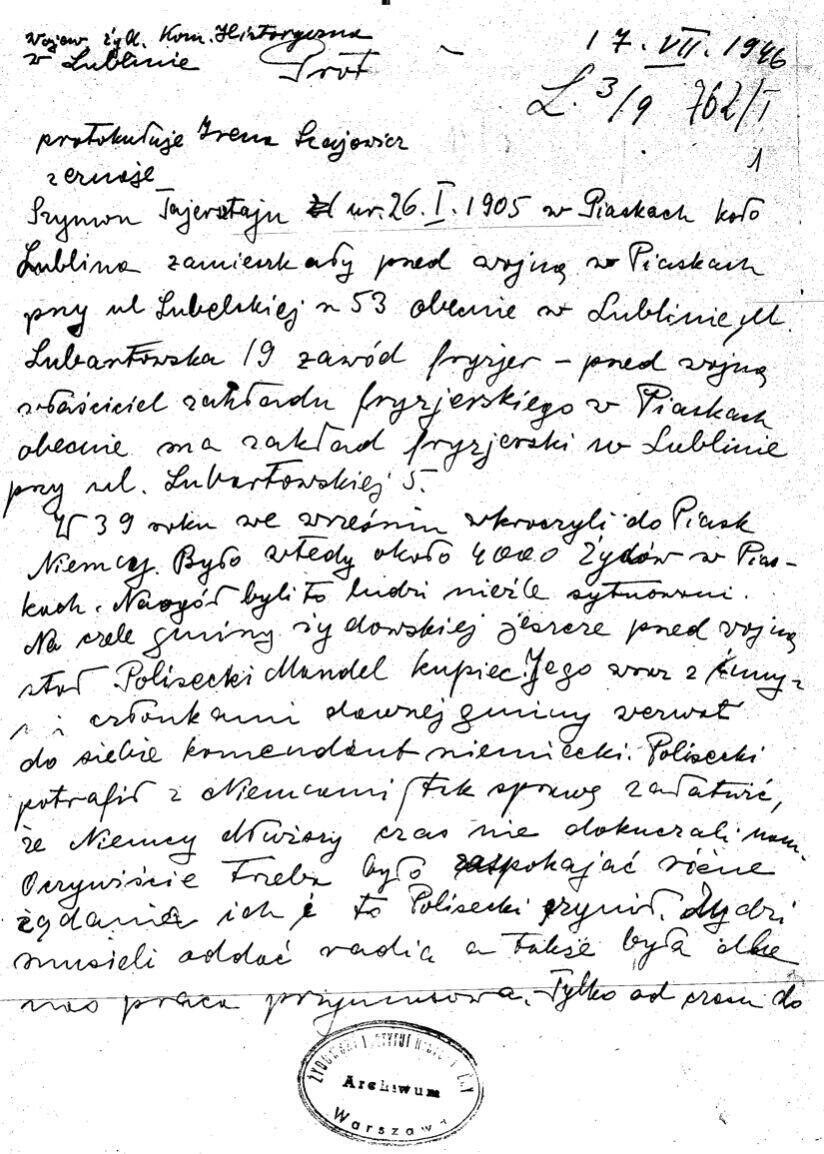 Wojew żyd. Kom. Historyczna
w Lublinie
Prot
17. VII. 1946
L. 3/9 762/I
1
protokułuje Irena Szajowicz
zeznaje
Szymon Tajersztajn ur. 26. I. 1905 w Piaskach koło
Lublina zamieszkały przed wojną w Piaskach
przy ul Lubelskiej n 53 obecnie w Lublinie, ul.
Lubartowska 19 zawód fryzjer – przed wojną
właściciel zakładu fryzjerskiego w Piaskach
obecnie ma zakład fryzjerski w Lublinie
przy ul. Lubartowskiej 5.
W 39 roku we wrześniu wkroczyli do Piask
Niemcy. Było wtedy około 4000 Żydów w Pias-
kach. Naogół byli to ludzi nieźle sytuowani.
Na czele gminy żydowskiej jeszcze przed wojną
stał Polisecki Mendel kupiec. Jego wraz z innym-
i członkami dawnej gminy wezwał
do siebie komendant niemiecki. Polisecki
potrafił z Niemcami tak sprawę załatwić,
że Niemcy dłuższy czas nie dokuczali nam.
Oczywiście trzeba było zaspokajać różne
żądania ich i to Polisecki czynił. Żydzi
musieli oddać radia a także była dla
nas praca przymusowa. Tylko od czasu do
ŻYDOWSKI INSTYTUT HISTORYCZNY
Archiwum
Warszawa